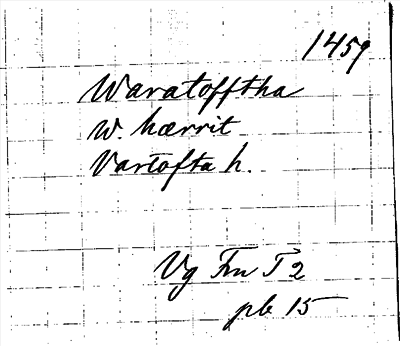 1459
Waratofftha
W. hærrit
Vartofta h.
Vg Fru T 2
pb 15